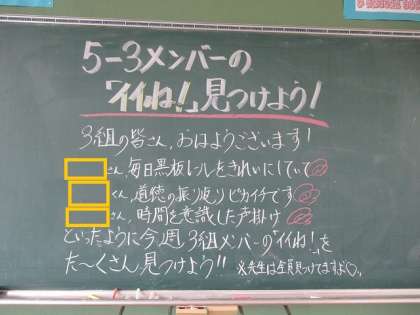 5-3メンバーの
「イイね!」見つけよう!
3組の皆さん、おはようございます!
さん、毎日黒板レールをきれいにしていて
くん、道徳の振り返りピカイチです
さん、時間を意識した声掛け
といったように今週3組メンバーの「イイね!」を
た〜くさん見つけよう!! ※先生は全員見つけてますよ♡。